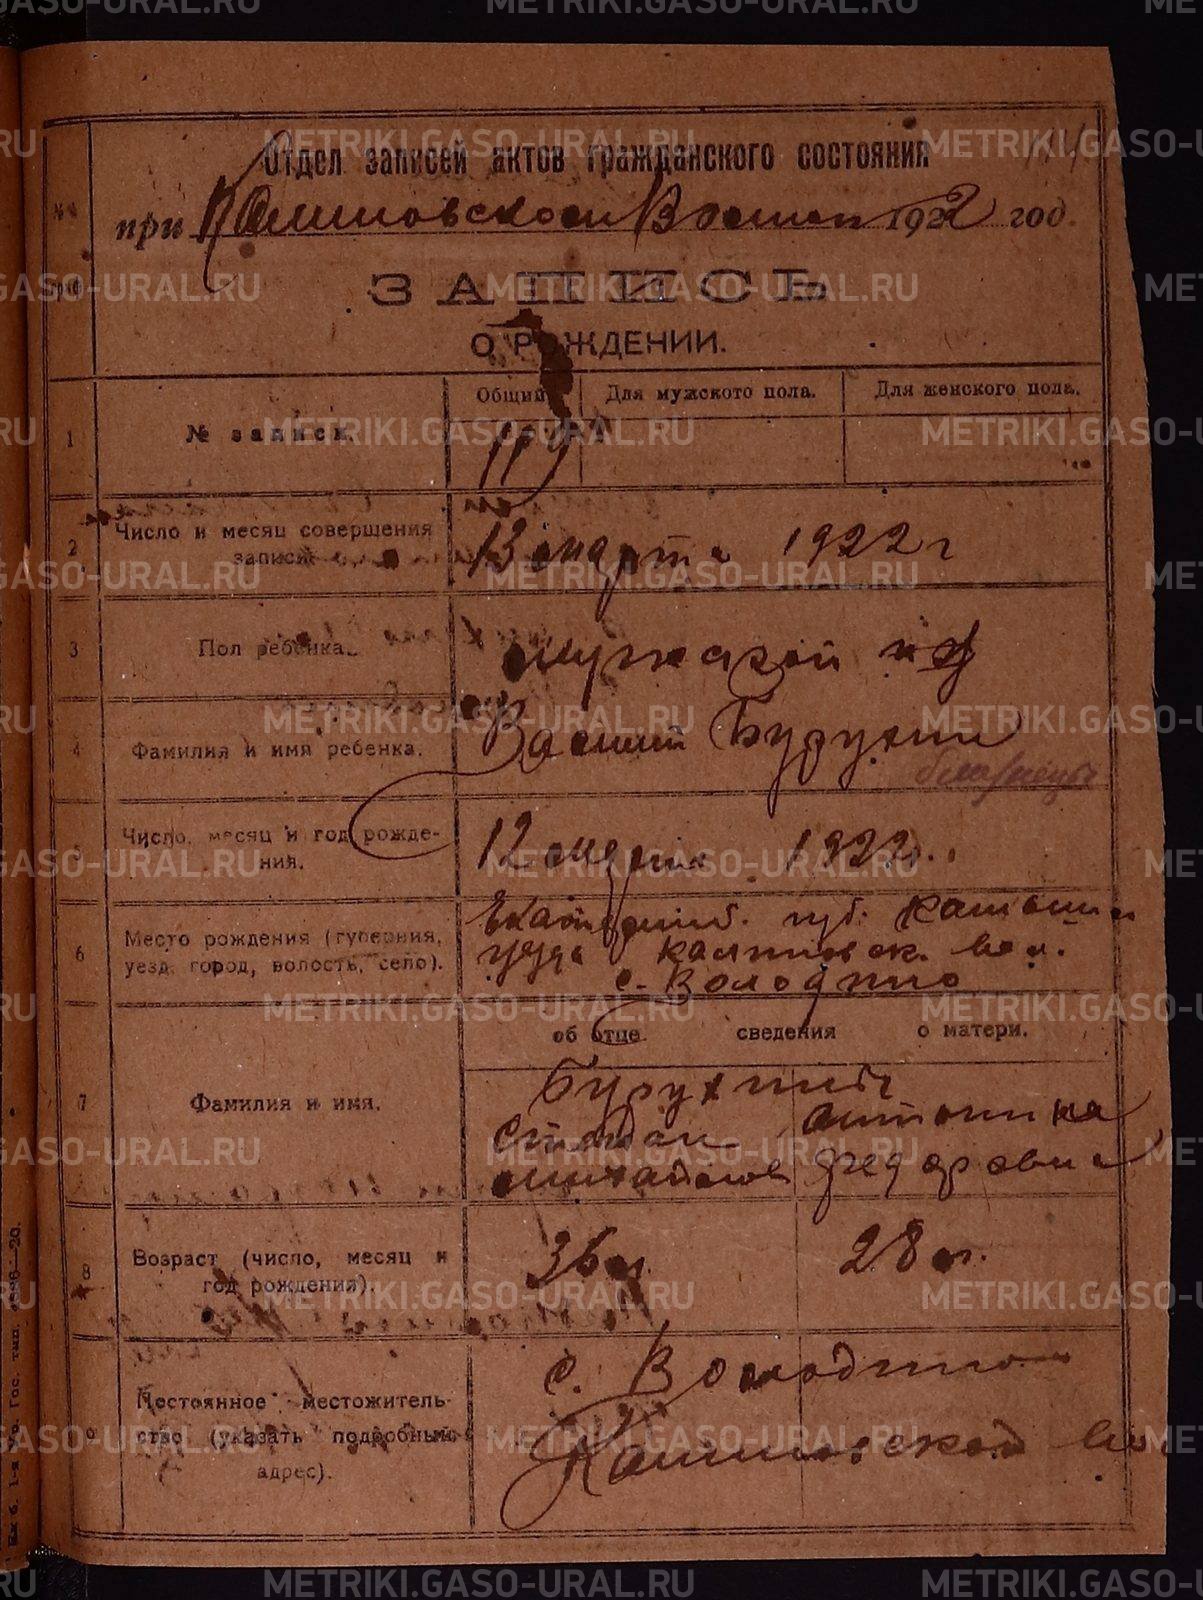 METRIKI.GASO-URAL.RU
Отдел записей актов гражданского состояния
при Калиновской Волости 1922 год.
ЗАПИСЬ
О РОЖДЕНИИ.
Общий Для мужского пола. Для женского пола.
1 № записи.
2 Число и месяц совершения записи 13 марта 1922 г
3 Пол ребенка. мужской
4 Фамилия и имя ребенка. Василий Бурухин
близнецы
5 Число, месяц и год рожде-
ния. 12 марта 1922 г.
6 Место рождения (губерния,
уезд, город, волость, село).
Екатеринб. губ. Камышл
уезда Калиновск. вол.
с. Володино
об отце сведения о матери.
7 Фамилия и имя. Бурухины
Степан Антонина
Михайлов Федоровна
8 Возраст (число, месяц и
год рождения). 36 л. 28 л.
9 Постоянное местожитель-
ство (указать подробный
адрес).
с. Володино
Калиновской вол